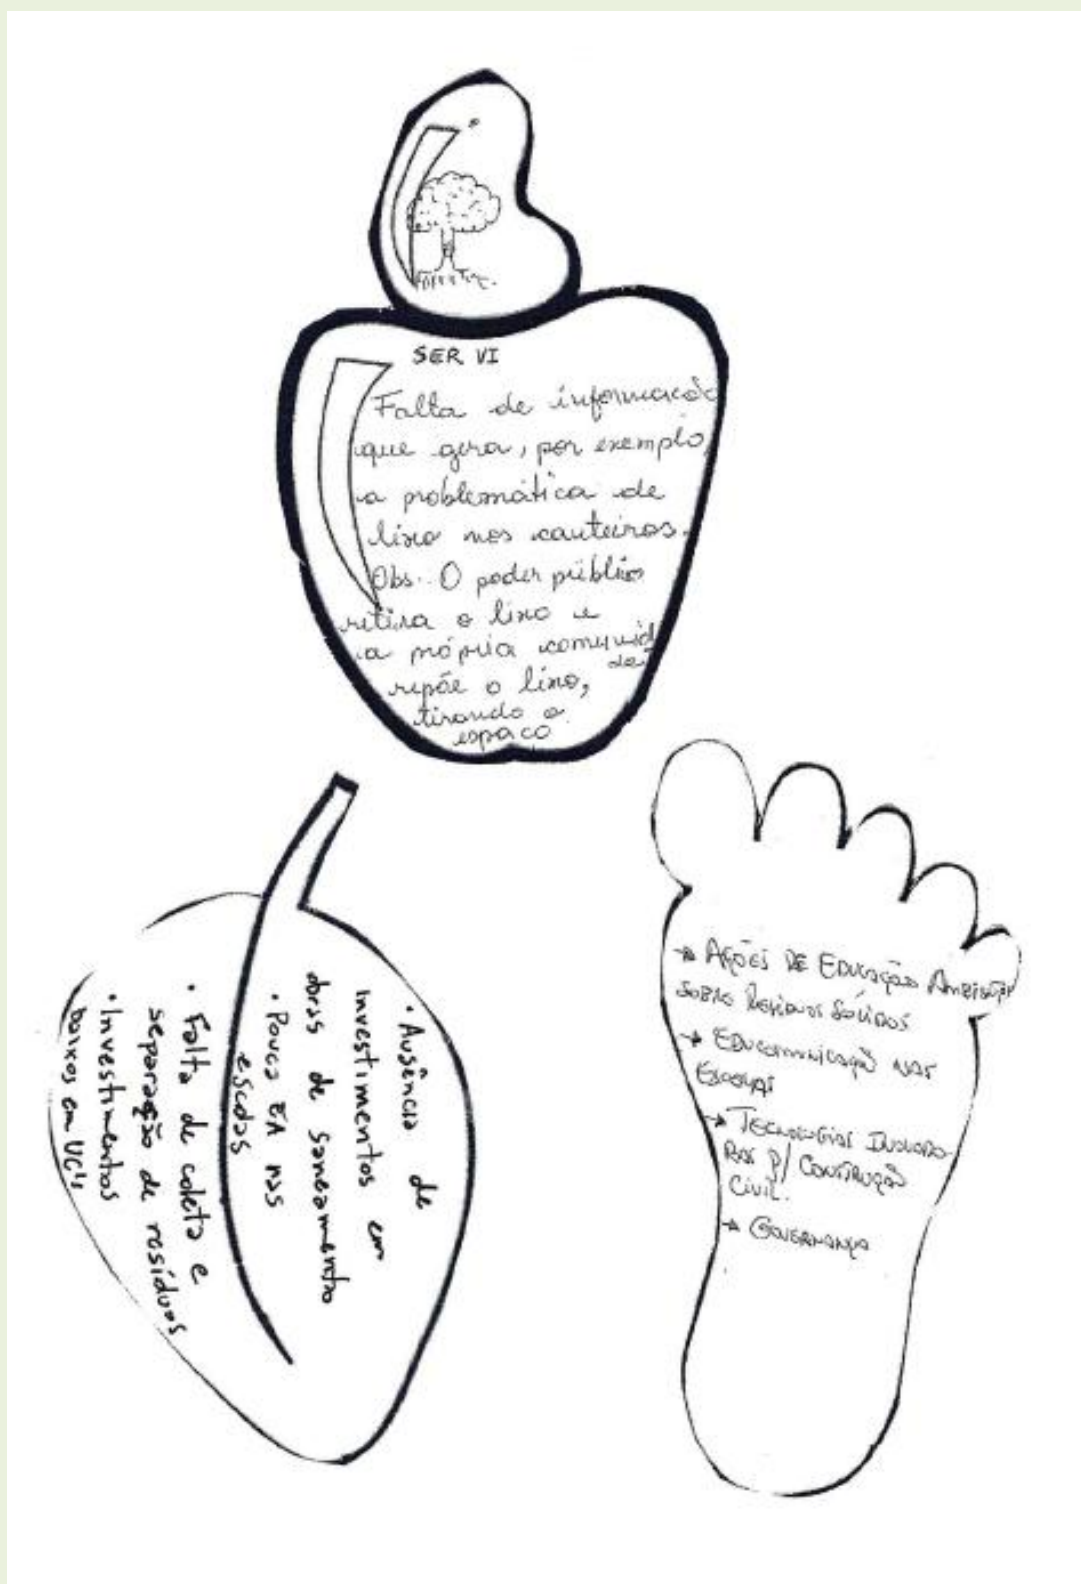 SER VI
Falta de informação
que gera, por exemplo,
a problemática de
lixo nos canteiros.
Obs.. O poder público
retira o lixo e
a própria comunid
de
repõe o lixo,
tirando o
espaço
• Ausência de
investimentos em
obras de saneamento
• Pouca EA nas
escolas
• Falta de coleta e
separação de resíduos
• Investimentos
baixos em UC's
→ AÇÕES DE EDUCAÇÃO AMBIENTAL
SOBRE RESÍDUOS SÓLIDOS
→ EDUCOMUNICAÇÃO NAS
ESCOLAS
→ TECNOLOGIAS INOVADO-
RAS P/ CONSTRUÇÃO
CIVIL.
→ GOVERNANÇA